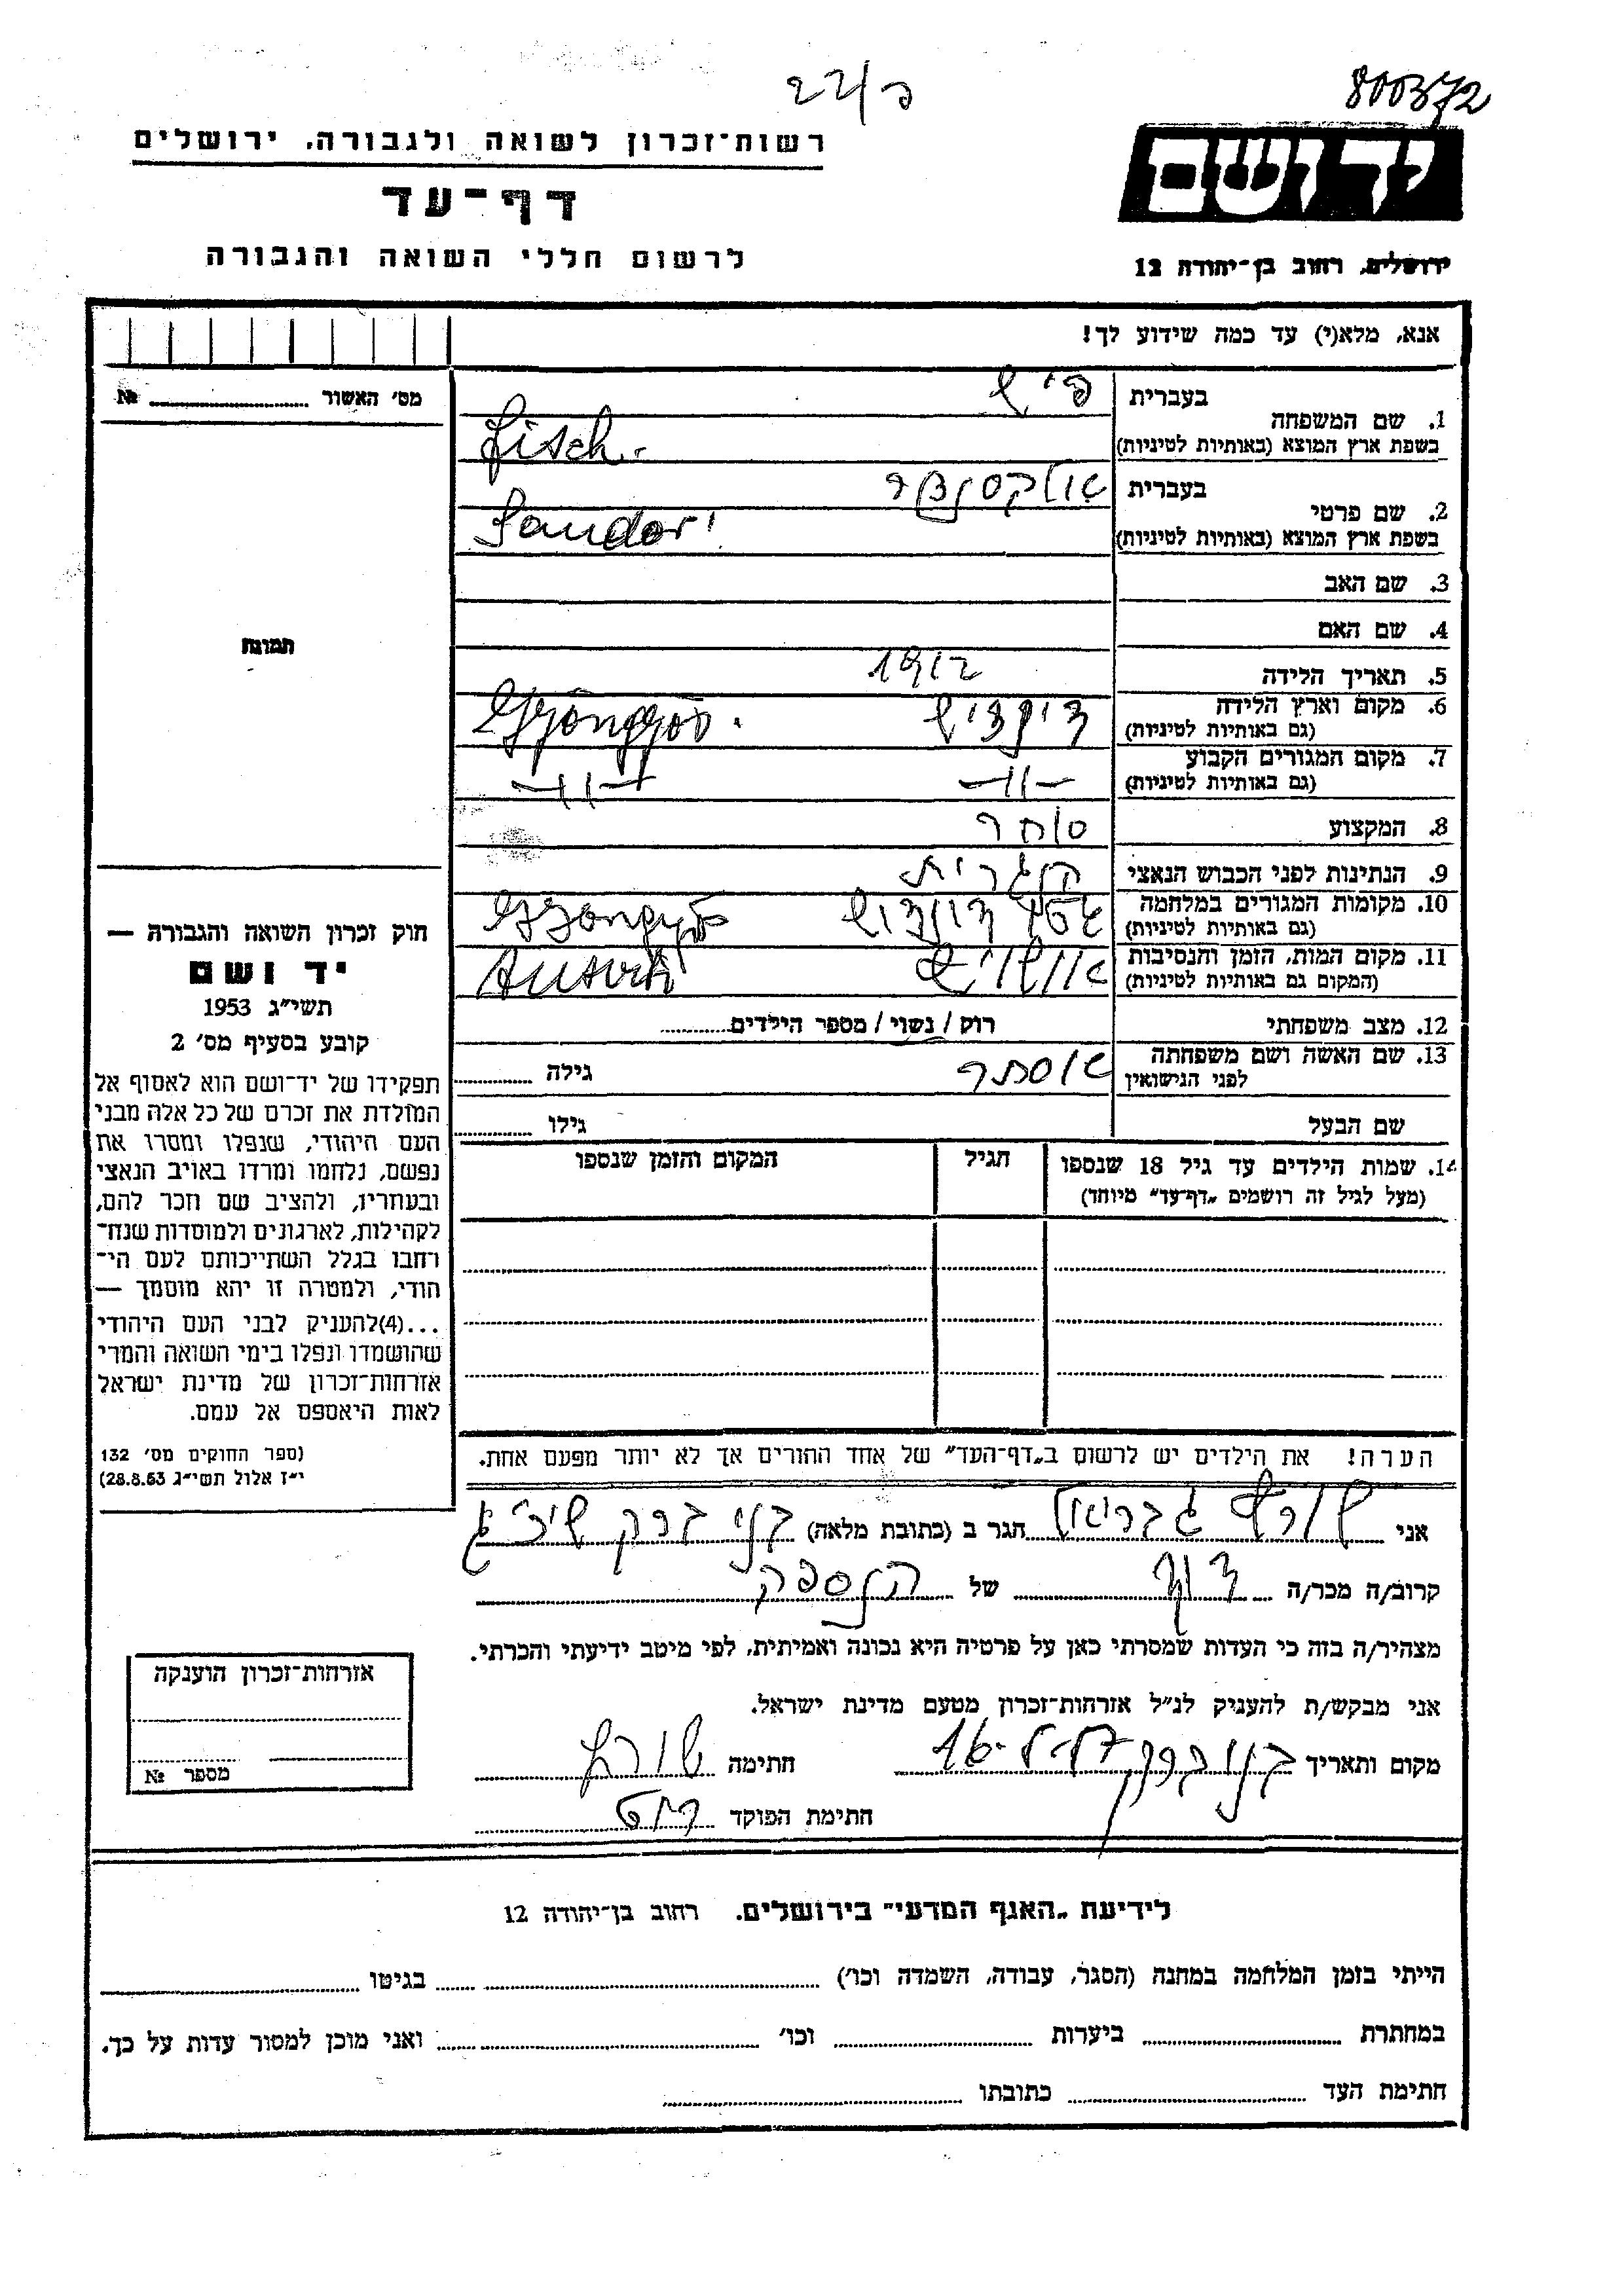 22/פ
800372
רשות־זכרון לשואה ולגבורה, ירושלים
דף־עד
לרשום חללי השואה והגבורה
יד ושם
ירושלים, רחוב בן־יהודה 12
אנא, מלא(י) עד כמה שידוע לך!
מס׳ האשור № 
תמונה
1. שם המשפחה בעברית פיש
בשפת ארץ המוצא (באותיות לטיניות) Fisch.
2. שם פרטי בעברית אלכסנדר
בשפת ארץ המוצא (באותיות לטיניות) Sandor
3. שם האב
4. שם האם
5. תאריך הלידה 1912
6. מקום וארץ הלידה
(גם באותיות לטיניות) Gyöngyös.
7. מקום המגורים הקבוע
(גם באותיות לטיניות) -"- -"-
8. המקצוע סוחר
9. הנתינות לפני הכבוש הנאצי הונגרית
10. מקומות המגורים במלחמה
(גם באותיות לטיניות) גטו
11. מקום המות, הזמן והנסיבות
(המקום גם באותיות לטיניות)
12. מצב משפחתי רוק / נשוי / מספר הילדים
13. שם האשה ושם משפחתה
לפני הנישואין אסתר גילה
שם הבעל גילו
14. שמות הילדים עד גיל 18 שנספו הגיל המקום והזמן שנספו
(מעל לגיל זה רושמים „דף־עד” מיוחד)
הערה! את הילדים יש לרשום ב„דף־העד” של אחד ההורים אך לא יותר מפעם אחת.
חוק זכרון השואה והגבורה —
יד ושם
תשי״ג 1953
קובע בסעיף מס׳ 2
תפקידו של יד־ושם הוא לאסוף אל
המולדת את זכרם של כל אלה מבני
העם היהודי, שנפלו ומסרו את
נפשם, נלחמו ומרדו באויב הנאצי
ובעוזריו, ולהציב שם וזכר להם,
לקהילות, לארגונים ולמוסדות שנח־
רבו בגלל השתייכותם לעם הי־
הודי, ולמטרה זו יהא מוסמך —
...(4)להעניק לבני העם היהודי
שהושמדו ונפלו בימי השואה והמרי
אזרחות־זכרון של מדינת ישראל
לאות היאספם אל עמם.
(ספר החוקים מס׳ 132
י״ז אלול תשי״ג 28.8.53)
אני גבריאל הגר ב (כתובת מלאה) בני ברק
קרוב/ה מכר/ה של הנספה
מצהיר/ה בזה כי העדות שמסרתי כאן על פרטיה היא נכונה ואמיתית, לפי מיטב ידיעתי והכרתי.
אני מבקש/ת להעניק לנ״ל אזרחות־זכרון מטעם מדינת ישראל.
מקום ותאריך בני ברק חתימה
חתימת הפוקד
אזרחות־זכרון הוענקה
מספר №
לידיעת „האגף המדעי” בירושלים. רחוב בן־יהודה 12
הייתי בזמן המלחמה במחנה (הסגר, עבודה, השמדה וכו׳) בגיטו
במחתרת ביערות וכו׳ ואני מוכן למסור עדות על כך.
חתימת העד כתובתו